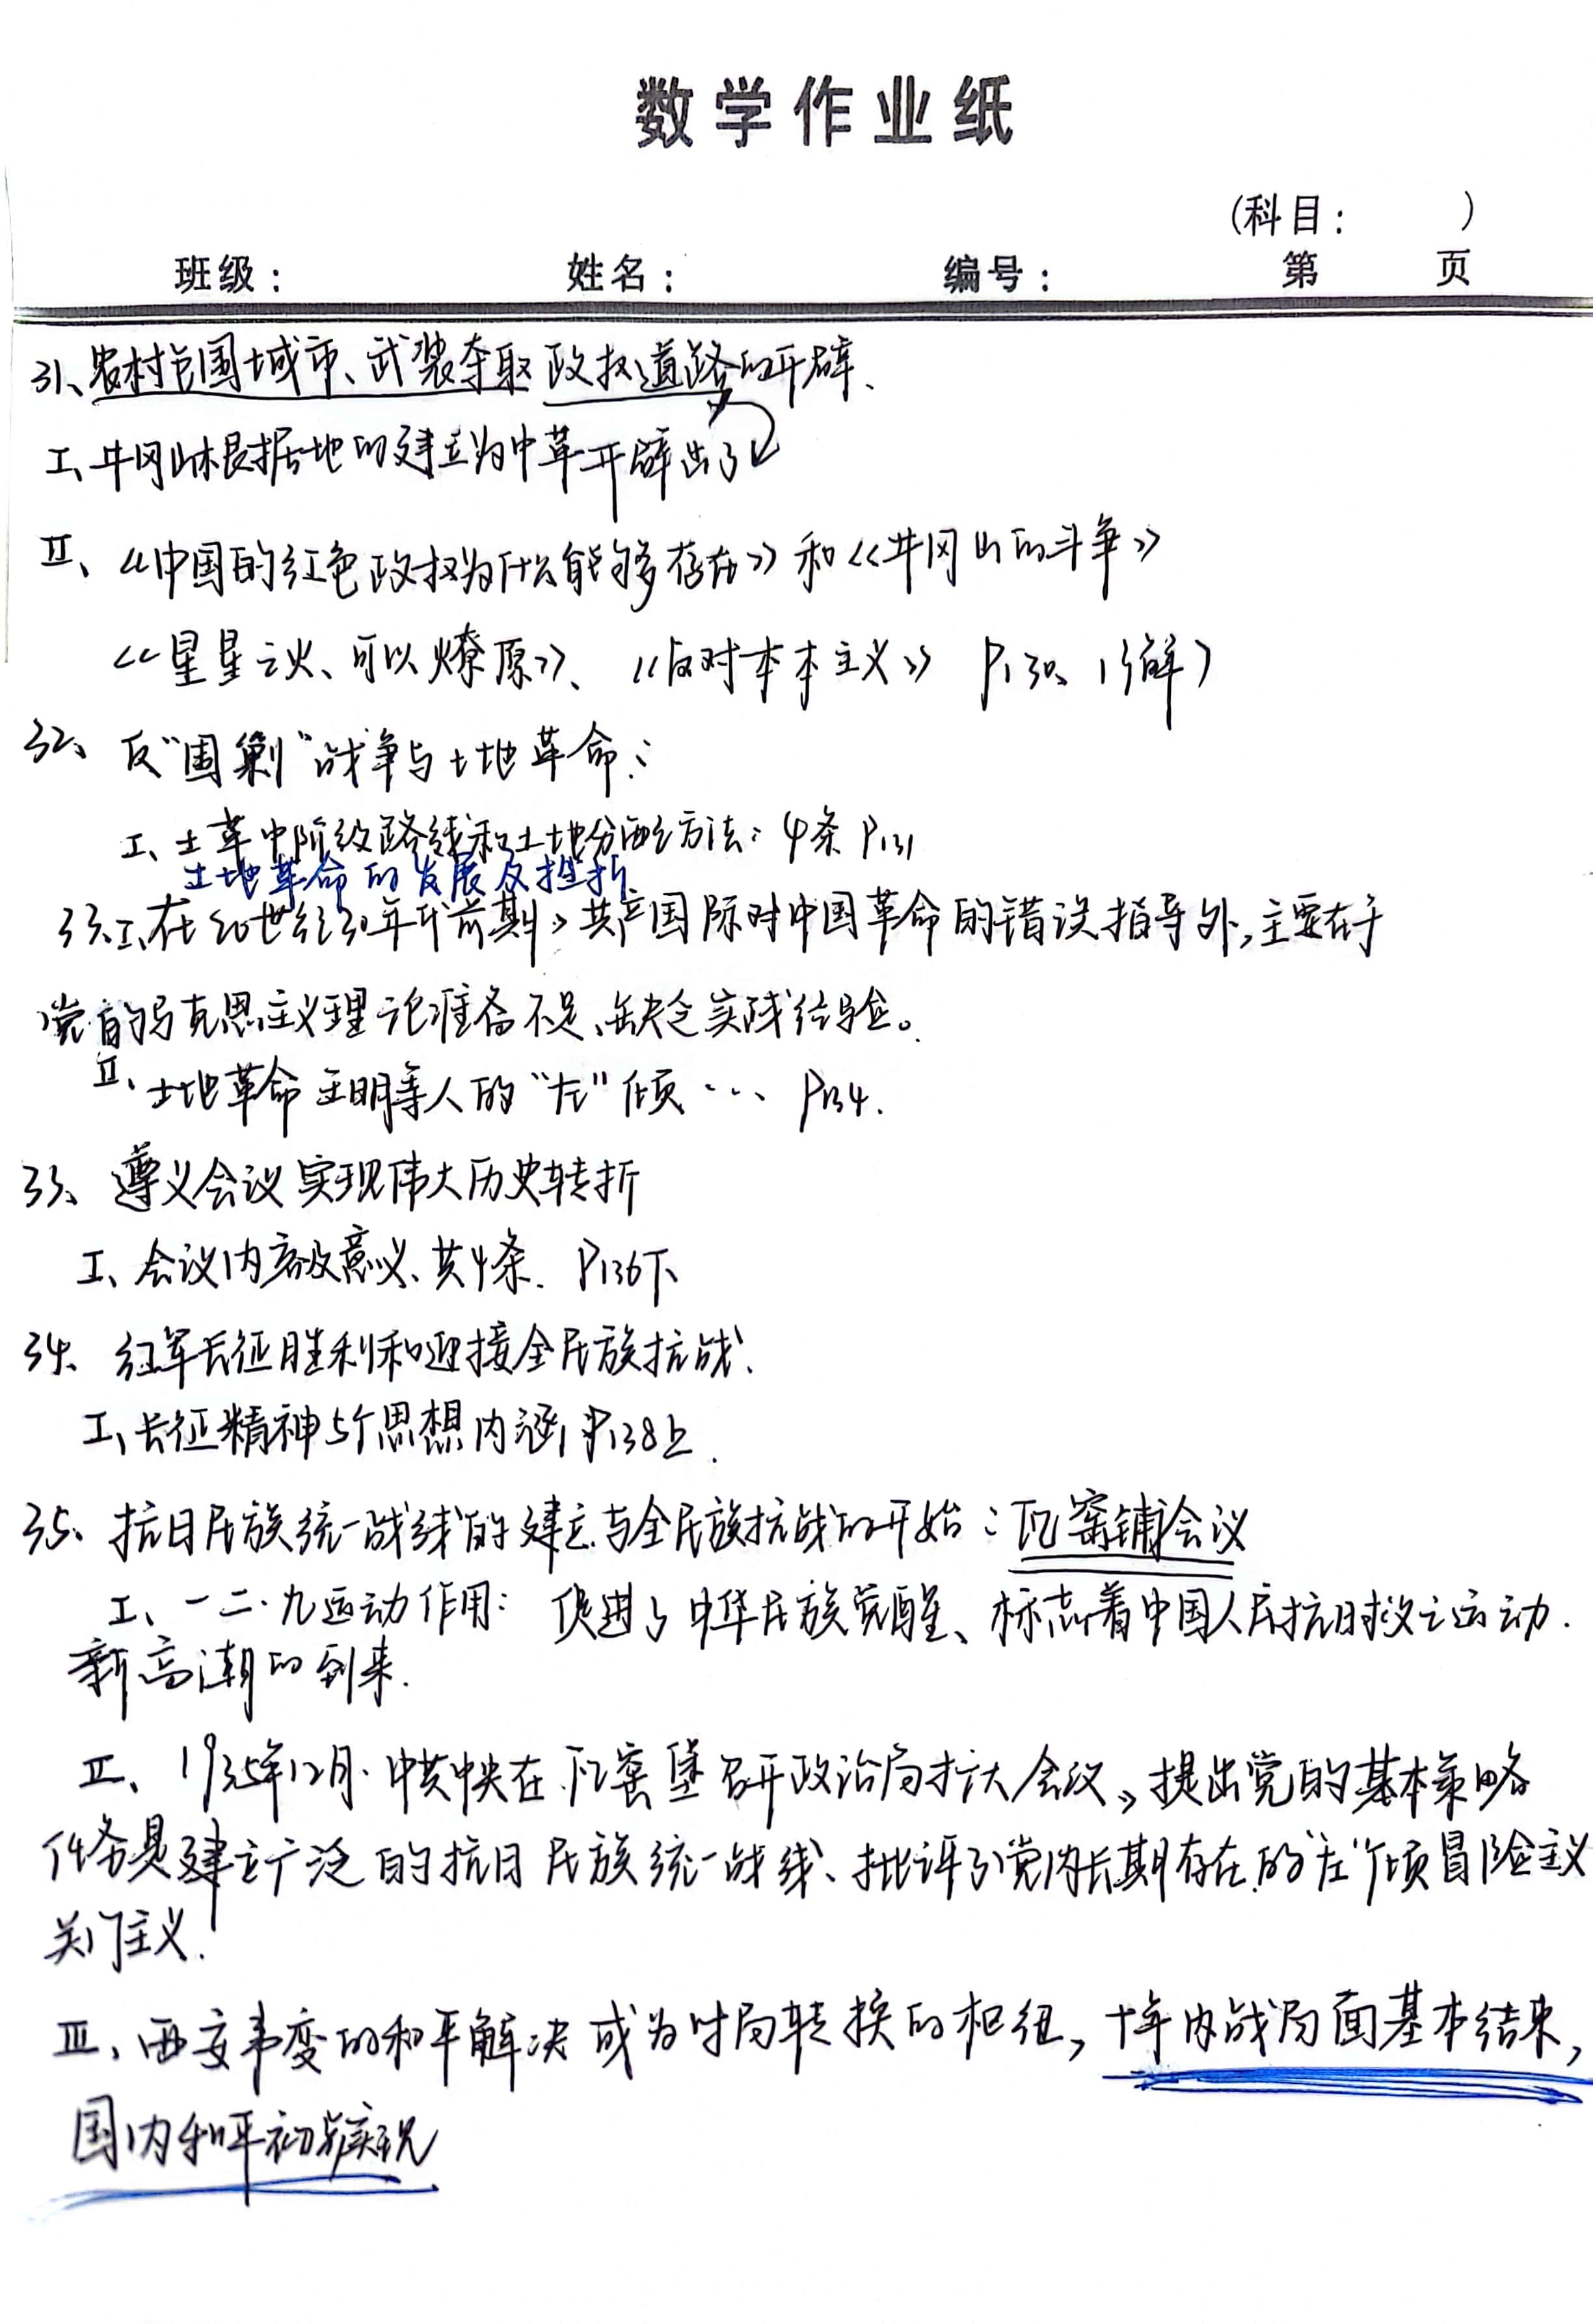 数学作业纸
(科目: )
班级: 姓名: 编号: 第 页
31、农村包围城市、武装夺取政权道路的开辟、
I、井冈山根据地的建立为中革开辟出了
II、《中国的红色政权为什么能够存在》和《井冈山的斗争》
《星星之火、可以燎原》、《反对本本主义》 P130、
32、反“围剿”战争与土地革命:
I、土革中阶级路线和土地分配方法: 4条 P131
土地革命的发展及挫折
33、I、在20世纪30年代前期,共产国际对中国革命的错误指导外,主要在于
党的马克思主义理论准备不足、缺乏实践经验。
II、土地革命王明等人的“左”倾··· P134.
33、遵义会议实现伟大历史转折
I、会议内容及意义、共4条. P136下
34、红军长征胜利和迎接全民族抗战.
I、长征精神5个思想内涵 P138上.
35、抗日民族统一战线的建立与全民族抗战的开始:瓦窑铺会议
I、一二·九运动作用: 促进了中华民族觉醒、标志着中国人民抗日救亡运动.
新高潮的到来.
II、1935年12月.中共中央在瓦窑堡召开政治局扩大会议,提出党的基本策略
任务是建立广泛的抗日民族统一战线、批评了党内长期存在的“左”倾冒险主义
关门主义.
III、西安事变的和平解决成为时局转换的枢纽,十年内战局面基本结束,
国内和平初步实现